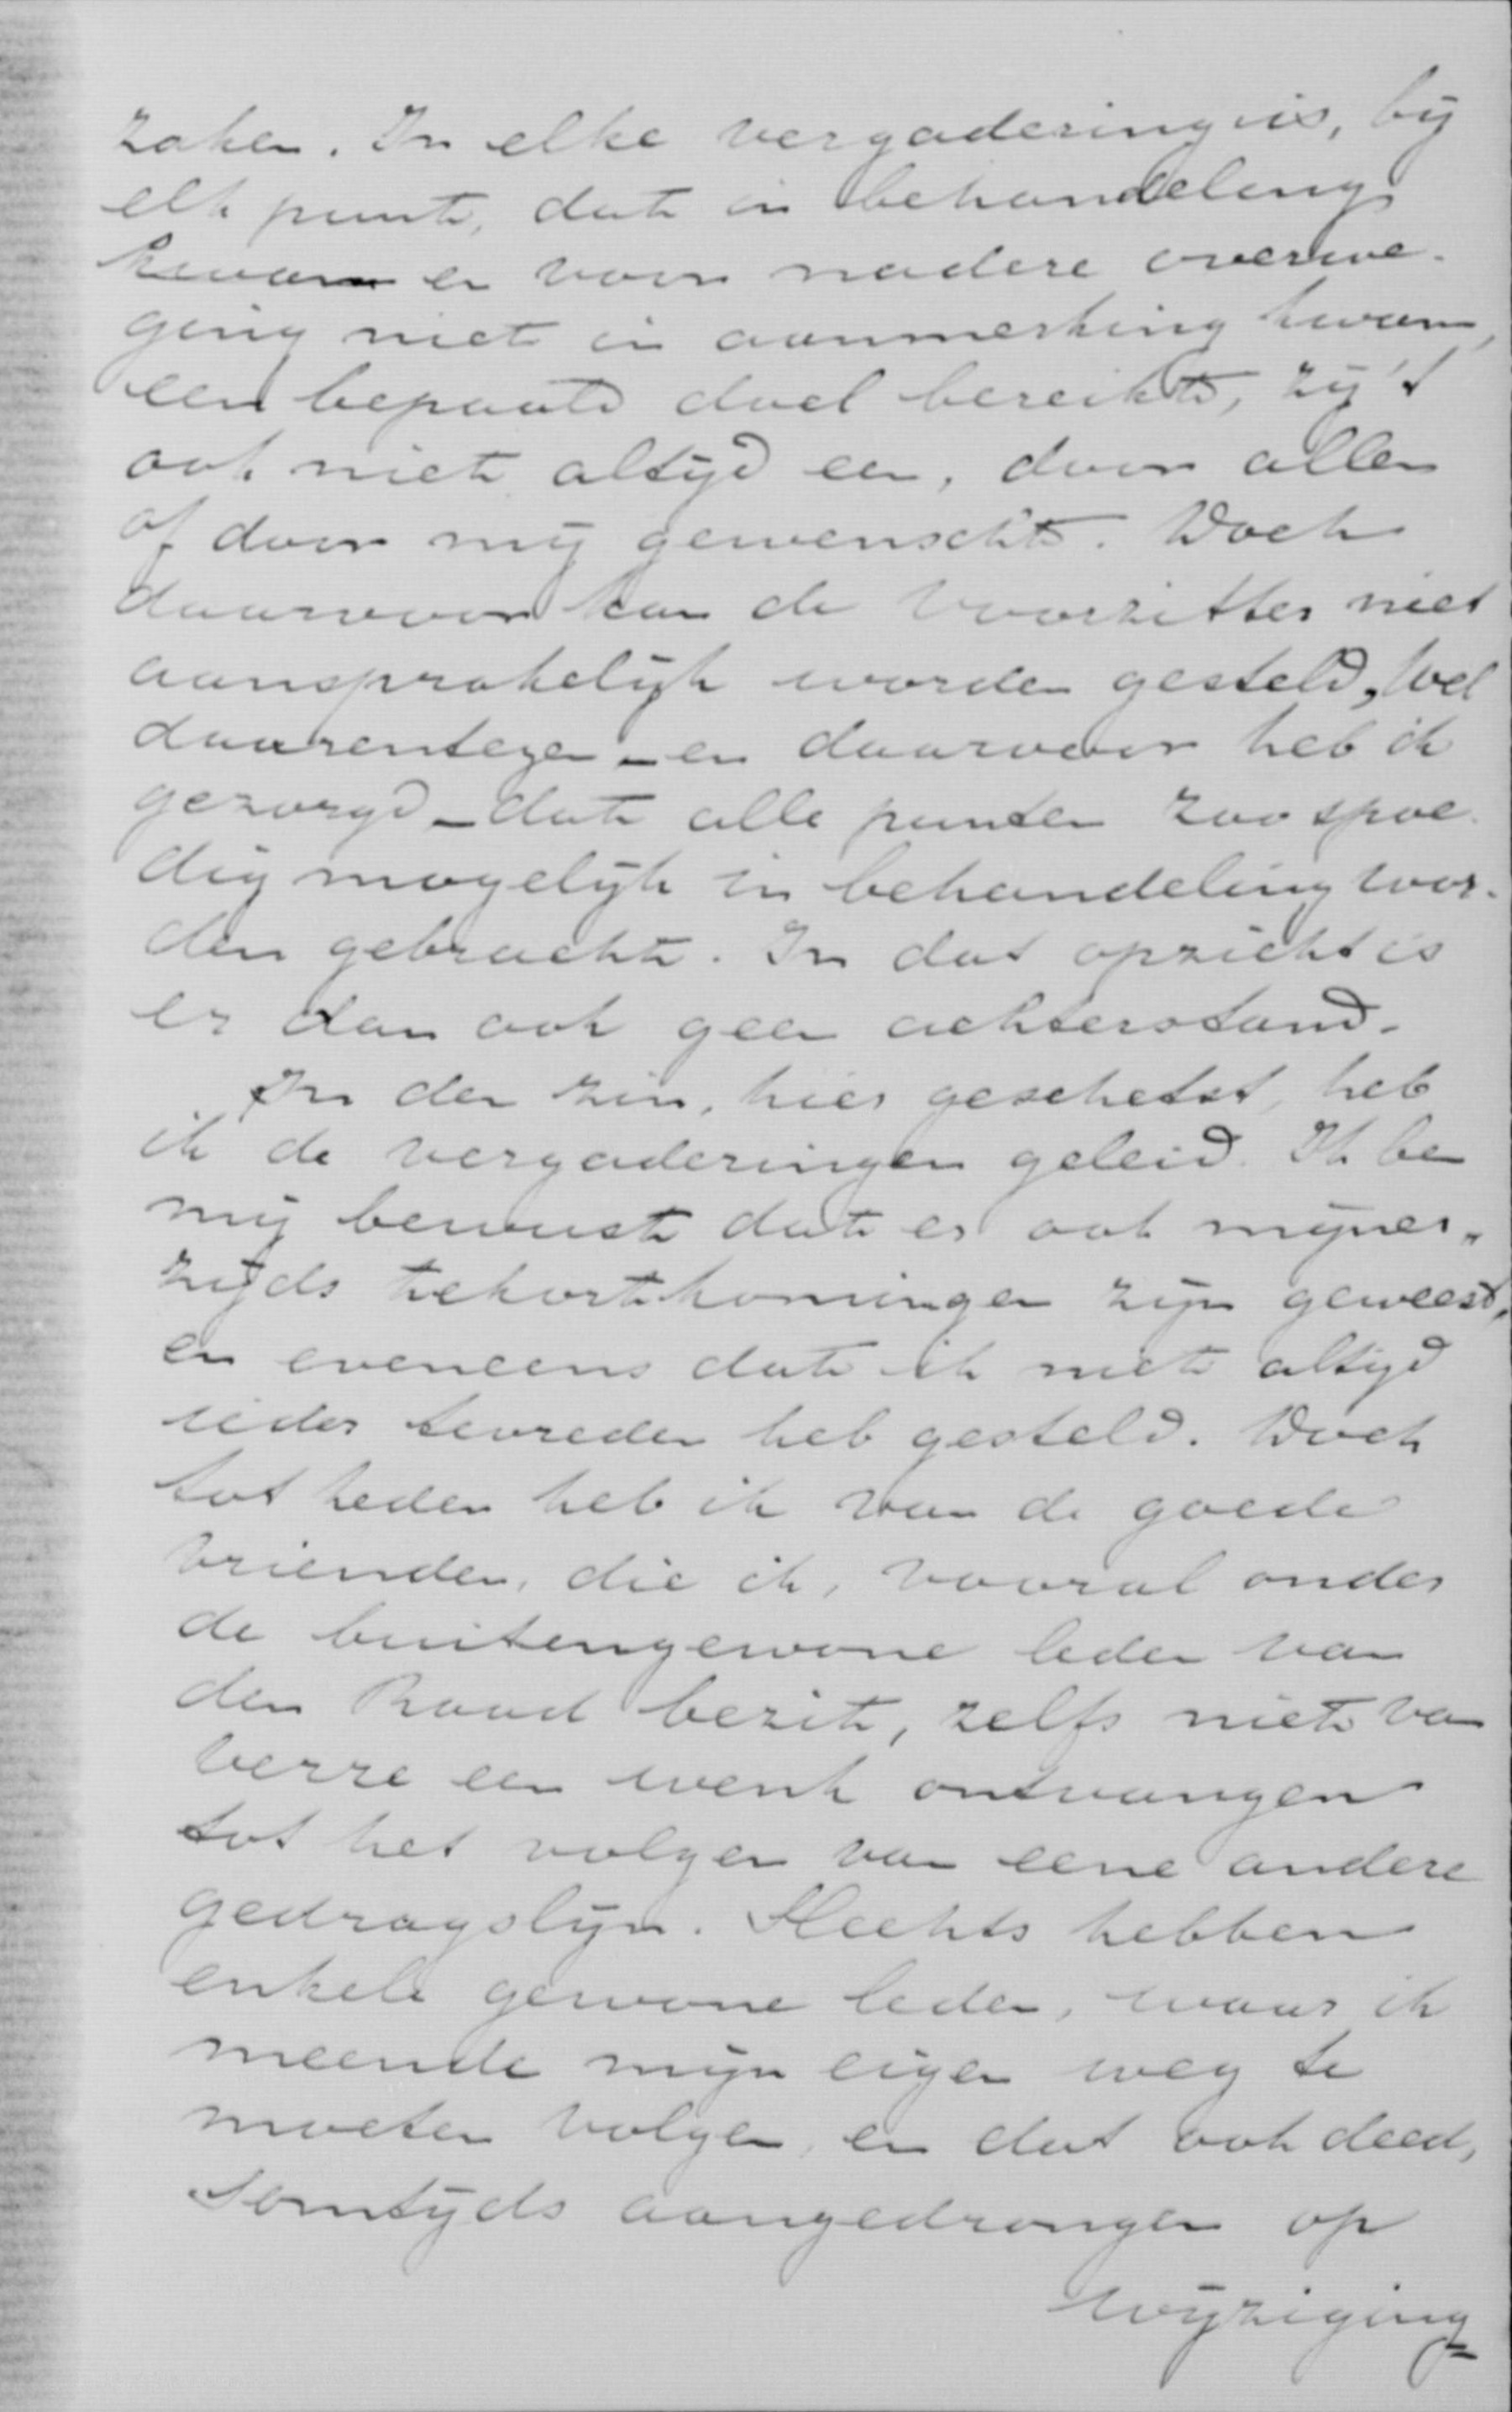 zaken. In elke vergadering is, bij
elk punt, dat in behandeling
kwam en voor nadere overwe-
ging niet in aanmerking kwam,
een bepaald doel bereikt, zij 't
ook niet altijd een, door allen
of door mij gewenscht. Doch
daarvoor kan de Voorzitter niet
aansprakelijk worden gesteld, Wel
daarentegen – en daarvoor heb ik
gezorgd – dat alle punten zoo spoe-
dig mogelijk in behandeling wor-
den gebracht. In dat opzicht is
er dan ook geen achterstand.
In den zin, hier geschetst, heb
ik de vergaderingen geleid. Ik ben
mij bewust dat er ook mijner-
zijds tekortkomingen zijn geweest,
en eveneens dat ik niet altijd
ieder tevreden heb gesteld. Doch
tot heden heb ik van de goede
vrienden, die ik, vooral onder
de buitengewone leden van
den Raad bezit, zelfs niet van
verre een wenk ontvangen
tot het volgen van eene andere
gedragslijn. Slechts hebben
enkele gewone leden, waar ik
meende mijn eigen weg te
moeten volgen, en dat ook deed,
somtijds aangedrongen op
wijziging